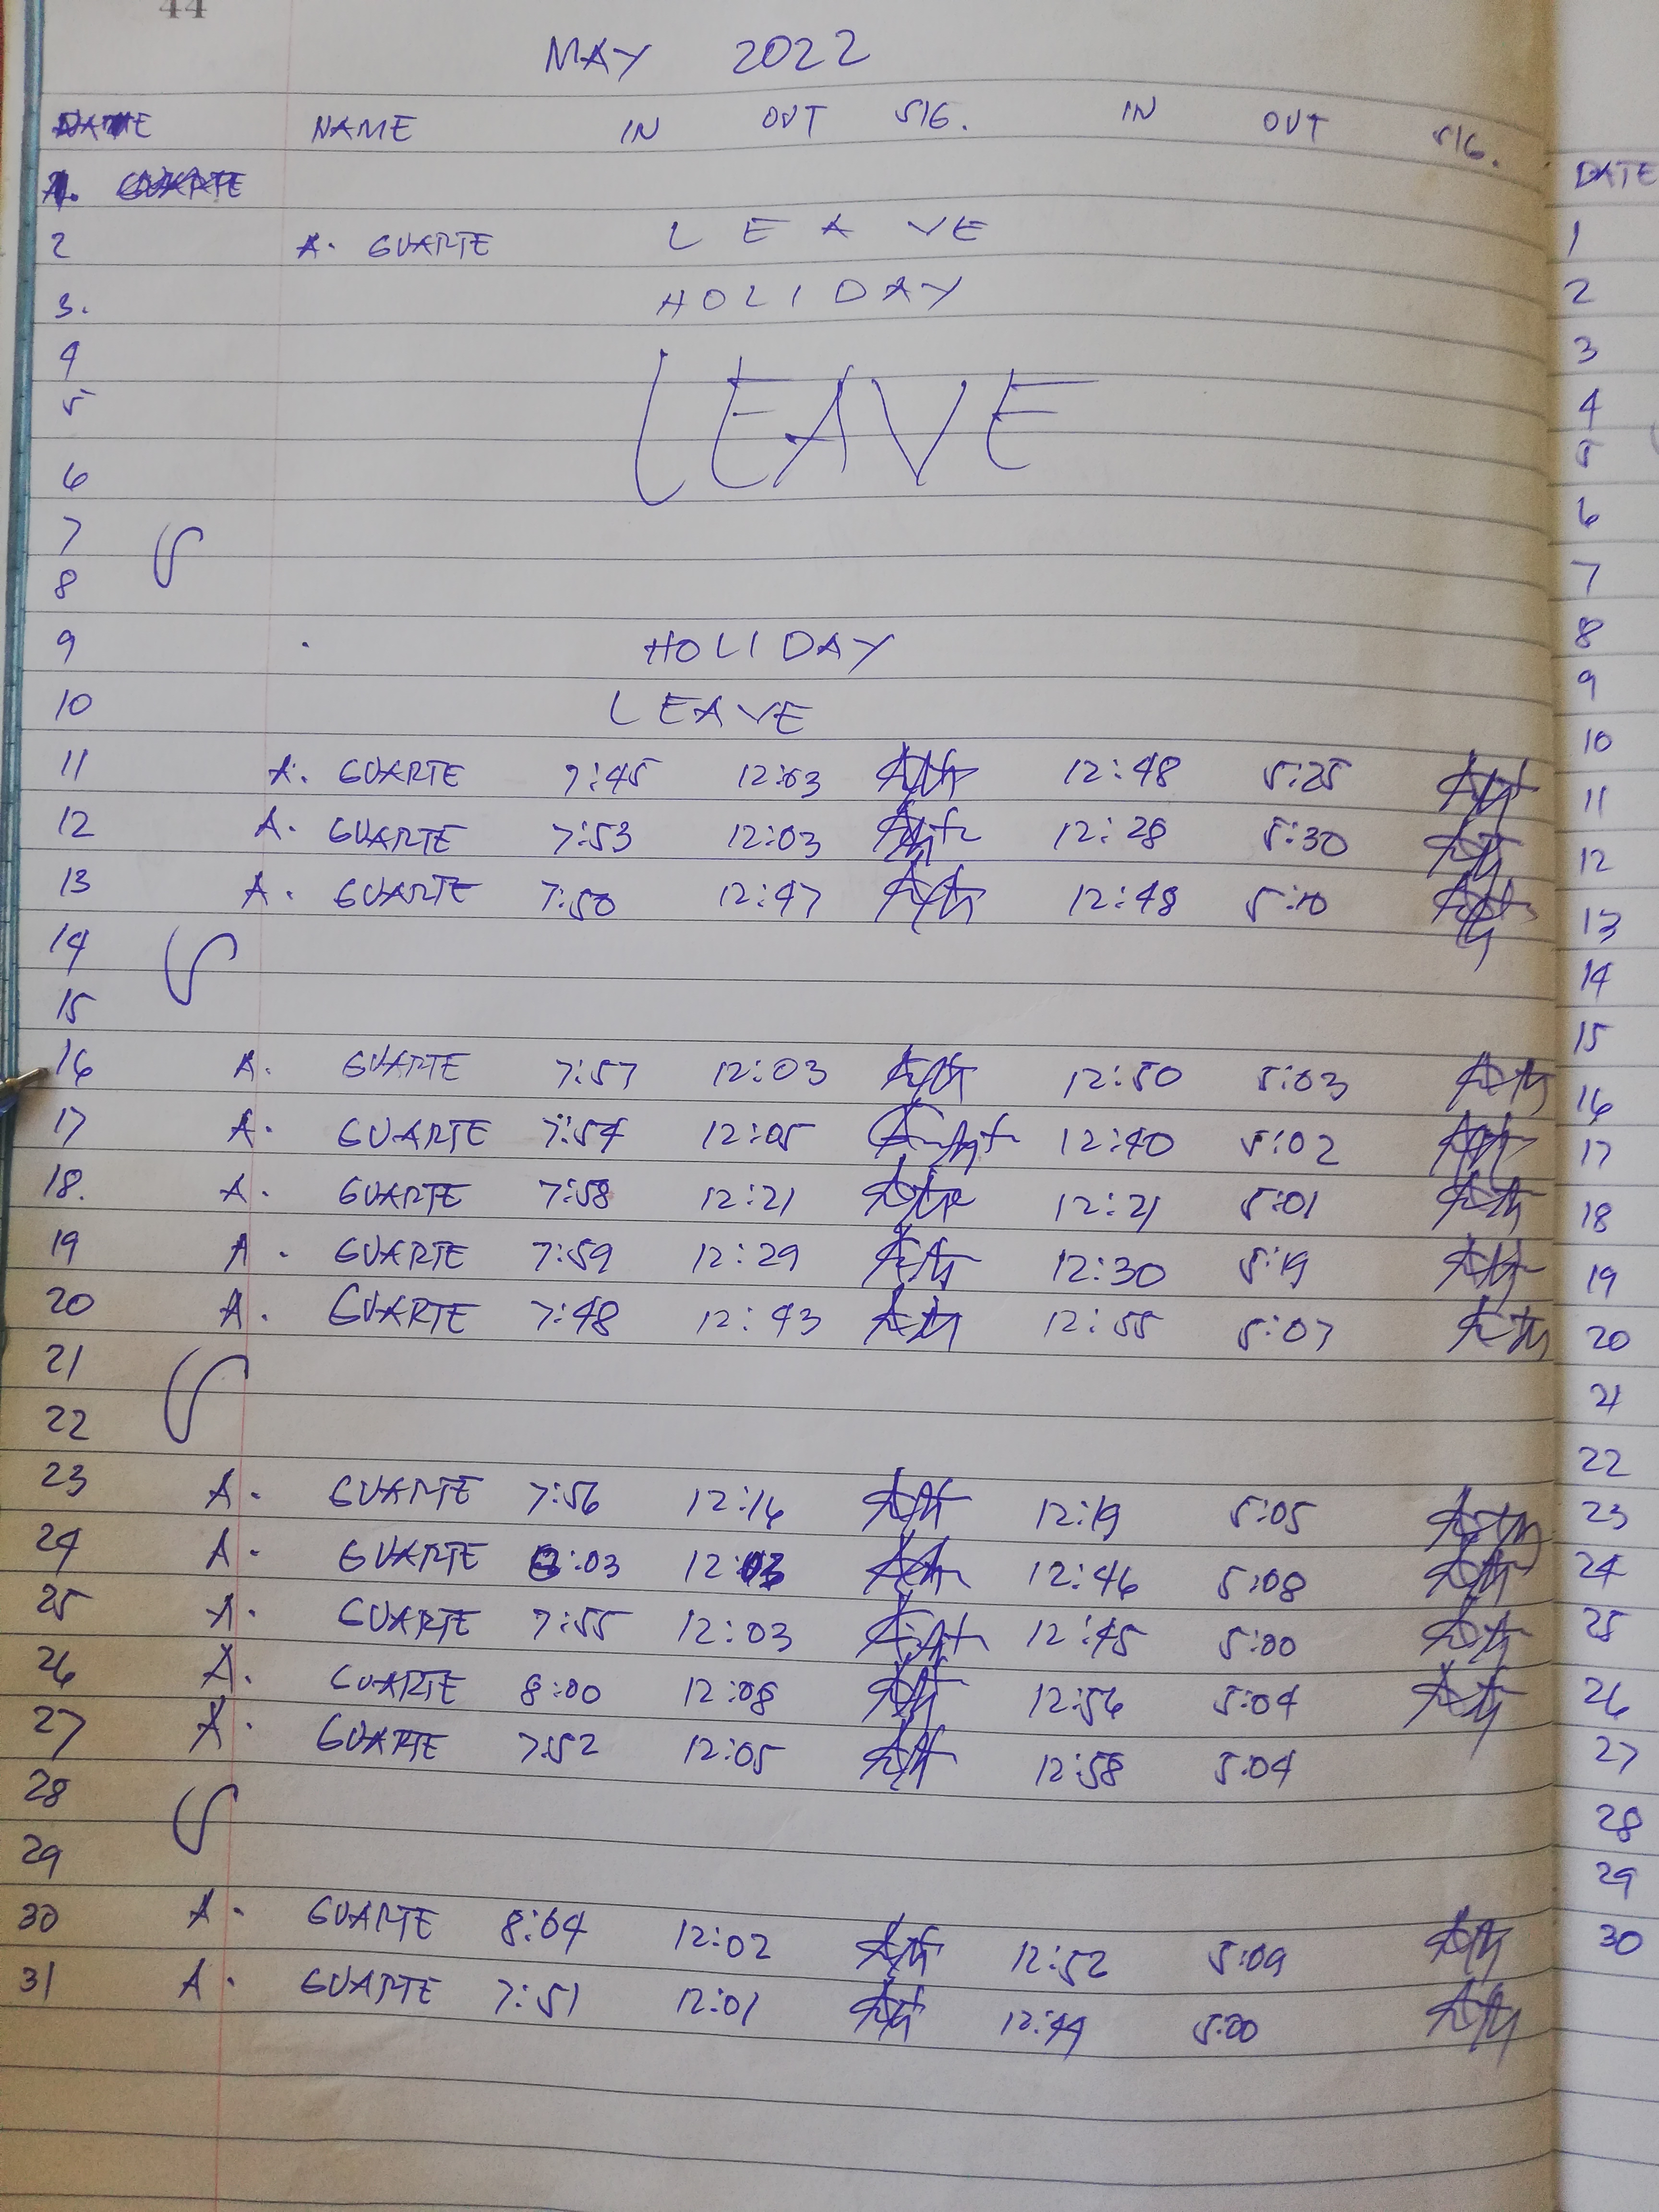 44
MAY 2022
NAME IN OUT SIG. IN OUT SIG.
2 A. GUARTE LEAVE
3. HOLIDAY
4
5 LEAVE
6
7
8
9 HOLIDAY
10 LEAVE
11 A. GUARTE 7:45 12:03 12:48 5:25
12 A. GUARTE 7:53 12:03 12:28 5:30
13 A. GUARTE 7:50 12:47 12:48 5:10
14
15
16 A. GUARTE 7:57 12:03 12:50 5:03
17 A. GUARTE 7:54 12:05 12:40 5:02
18. A. GUARTE 7:58 12:21 12:21 5:01
19 A. GUARTE 7:59 12:29 12:30 5:19
20 A. GUARTE 7:48 12:43 12:55 5:07
21
22
23 A. GUARTE 7:56 12:16 12:19 5:05
24 A. GUARTE 12:46 5:08
25 A. GUARTE 7:55 12:03 12:45 5:00
26 A. GUARTE 8:00 12:08 12:56 5:04
27 A. GUARTE 7:52 12:05 12:58 5:04
28
29
30 A. GUARTE 8:04 12:02 12:52 5:09
31 A. GUARTE 7:51 12:01 12:49 5:00
DATE
1
2
3
4
5
6
7
8
9
10
11
12
13
14
15
16
17
18
19
20
21
22
23
24
25
26
27
28
29
30